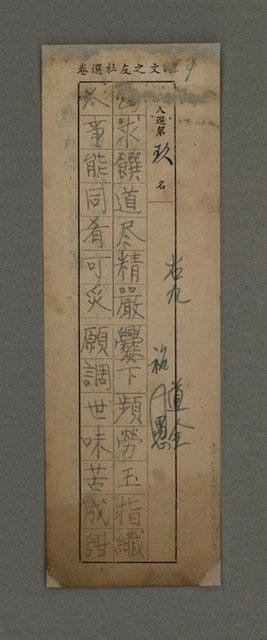 文之友社選卷
9
入選第玖名
右九
施
道全
愚
求饌道尽精嚴爨下頻勞玉指纖
人事能同肴可炙願調世味苦成甜